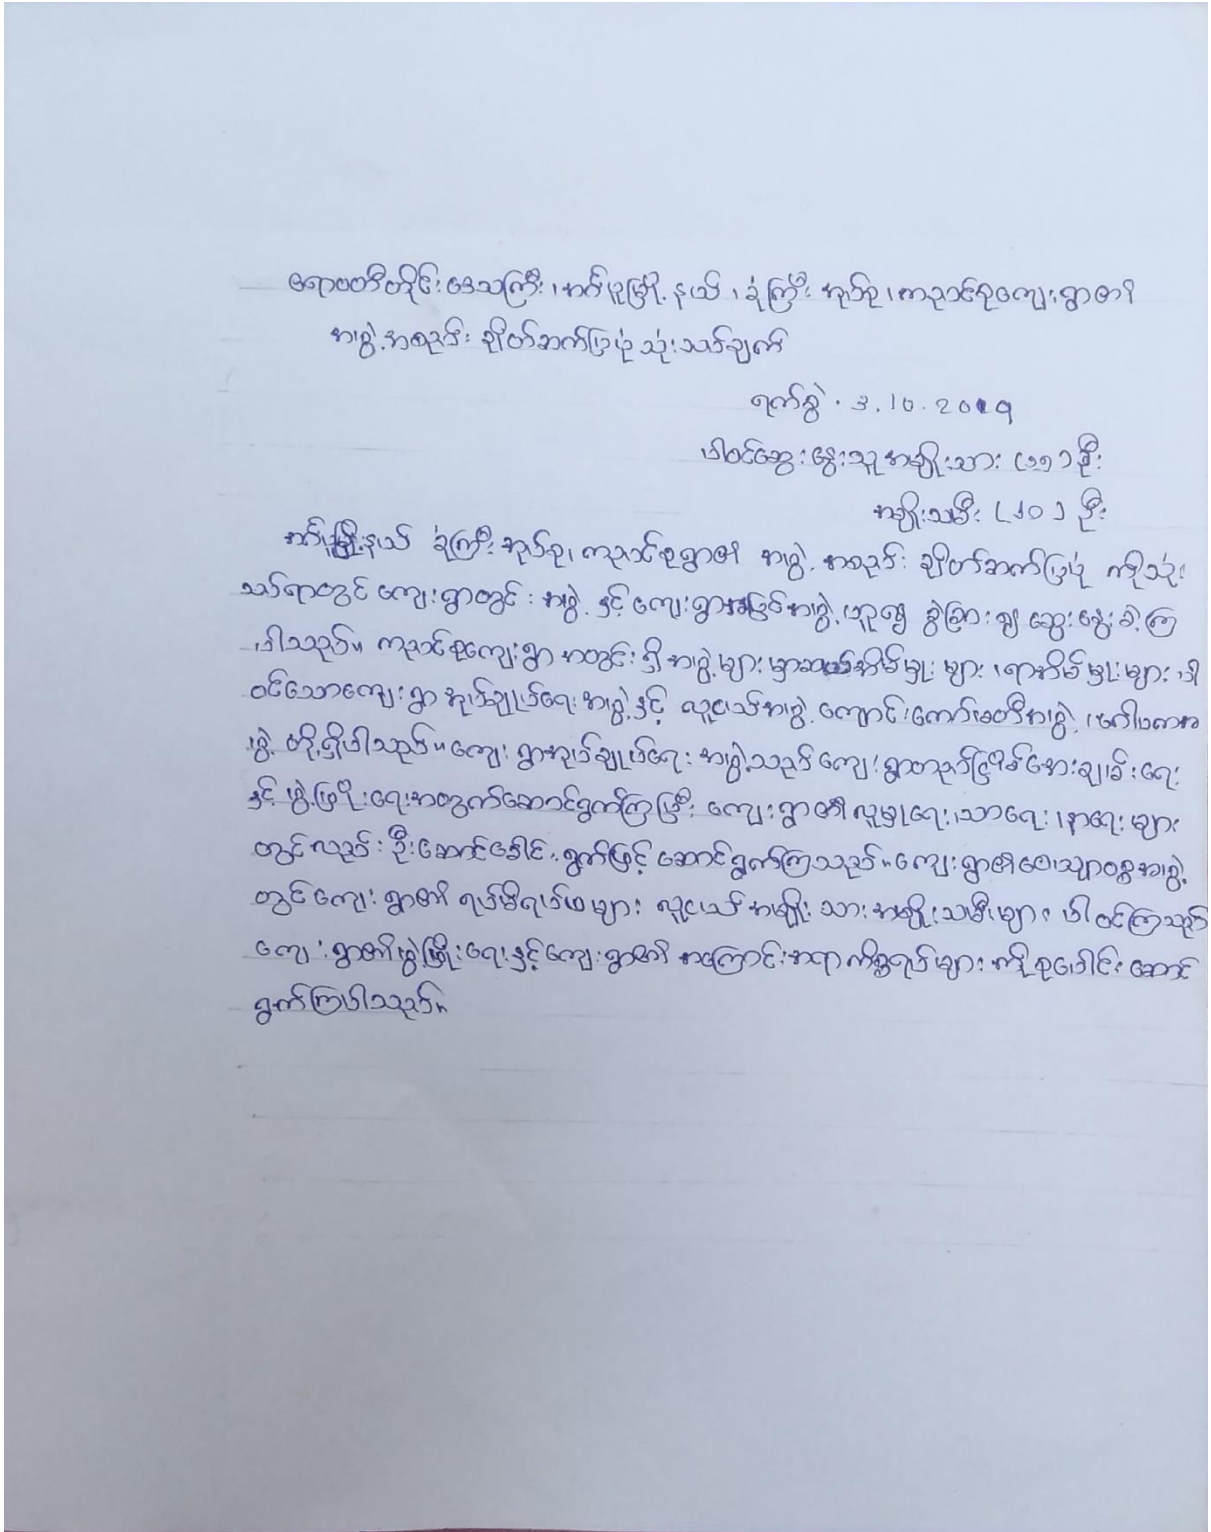 ဧရာဝတီတိုင်းဒေသကြီး၊ အင်္ဂပူမြို့နယ်၊ ခုံကြီးအုပ်စု၊ ကညင်စုကျေးရွာ၏
အဖွဲ့အစည်း ချိတ်ဆက်ပြပုံ သုံးသပ်ချက်
ရက်စွဲ . 3.10.2019
ပါဝင်ဆွေးနွေးသူ အမျိုးသား (၁၅) ဦး
အမျိုးသမီး (၂၀) ဦး
မြို့နယ် ခုံကြီးအုပ်စု၊ ကညင်စုရွာ၏ အဖွဲ့အစည်း ချိတ်ဆက်ပြပုံ ကိုသုံး
သပ်ရာတွင် ကျေးရွာတွင်းအဖွဲ့ နှင့် ကျေးရွာအပြင်အဖွဲ့ ဟူ၍ ခွဲခြား၍ ဆွေးနွေးခဲ့ကြ
ပါသည်။ ကညင်စုကျေးရွာ အတွင်းရှိ အဖွဲ့များမှာဆယ်အိမ်မှူးများ ၊ ရာအိမ်မှူးများ ပါ
ဝင်သောကျေးရွာ အုပ်ချုပ်ရေးအဖွဲ့နှင့် လူငယ်အဖွဲ့ ကျောင်းကော်မတီအဖွဲ့ ၊ ဂေါပကအ
ဖွဲ့ တို့ရှိပါသည်။ ကျေးရွာအုပ်ချုပ်ရေး အဖွဲ့သည် ကျေးရွာတည်ငြိမ်အေးချမ်းရေး
နှင့် ဖွံ့ဖြိုးရေးအတွက်ဆောင်ရွက်ကြပြီး ကျေးရွာ၏ လူမှုရေး ၊သာရေး ၊နာရေးများ
တွင်လည်း ဦးဆောင်ခေါင်းရွက်ဖြင့် ဆောင်ရွက်ကြသည်။ ကျေးရွာ၏ ဝေယျာဝစ္စအဖွဲ့
တွင်ကျေးရွာ၏ ရပ်မိရပ်ဖများ လူငယ် အမျိုးသားအမျိုးသမီးများ ပါဝင်ကြသည်
ကျေးရွာ၏ဖွံ့ဖြိုးရေးနှင့်ကျေးရွာ၏ အကြောင်းအရာကိစ္စရပ်များ ကိုစုပေါင်းဆောင်
ရွက်ကြပါသည်။